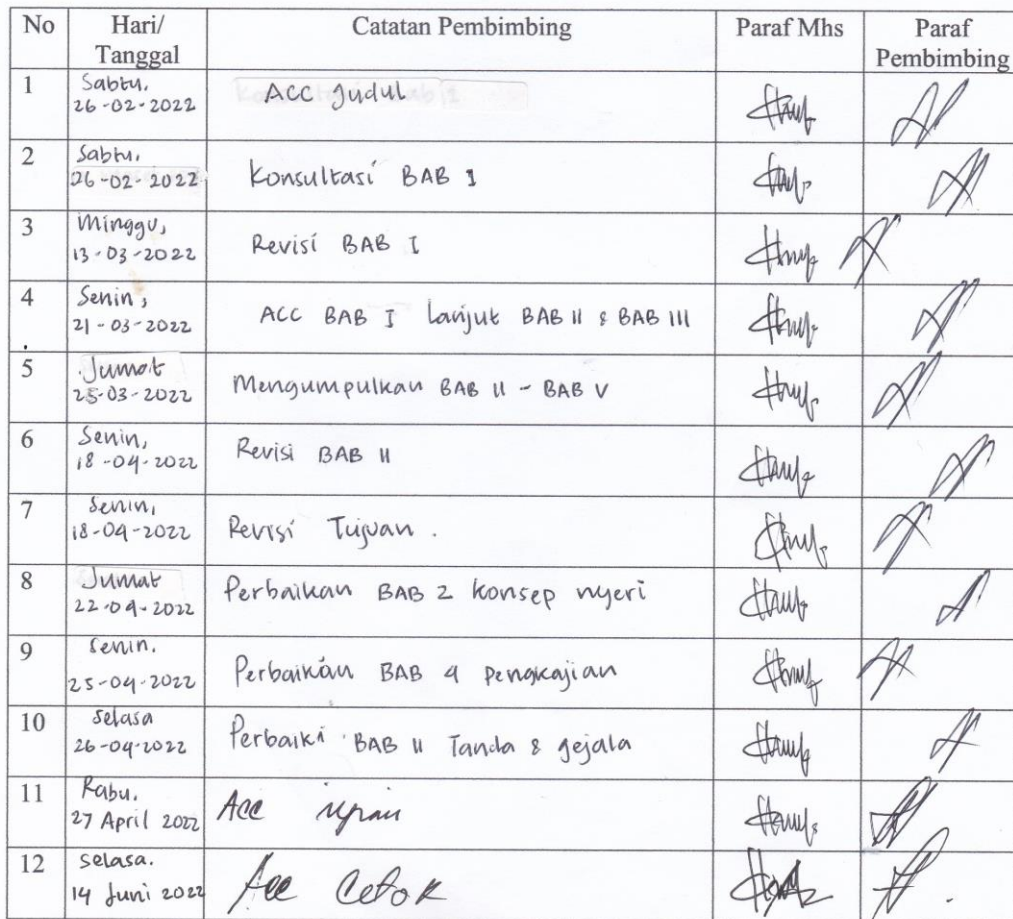 No Hari/ Catatan Pembimbing Paraf Mhs Paraf
Tanggal Pembimbing
1 Sabtu,
26-02-2022 ACC Judul
2 Sabtu,
26-02-2022 Konsultasi BAB I
3 Minggu,
13-03-2022 Revisi BAB I
4 Senin,
21-03-2022 ACC BAB I Lanjut BAB II & BAB III
5 Jumat
25-03-2022 Mengumpulkan BAB II - BAB V
6 Senin,
18-04-2022 Revisi BAB II
7 Senin,
18-04-2022 Revisi Tujuan.
8 Jumat
22-04-2022 Perbaikan BAB 2 konsep nyeri
9 Senin.
25-04-2022 Perbaikan BAB 4 pengkajian
10 Selasa
26-04-2022 Perbaiki BAB II Tanda & gejala
11 Rabu,
27 April 2022 Acc
12 Selasa.
14 Juni 2022 Acc Cetak